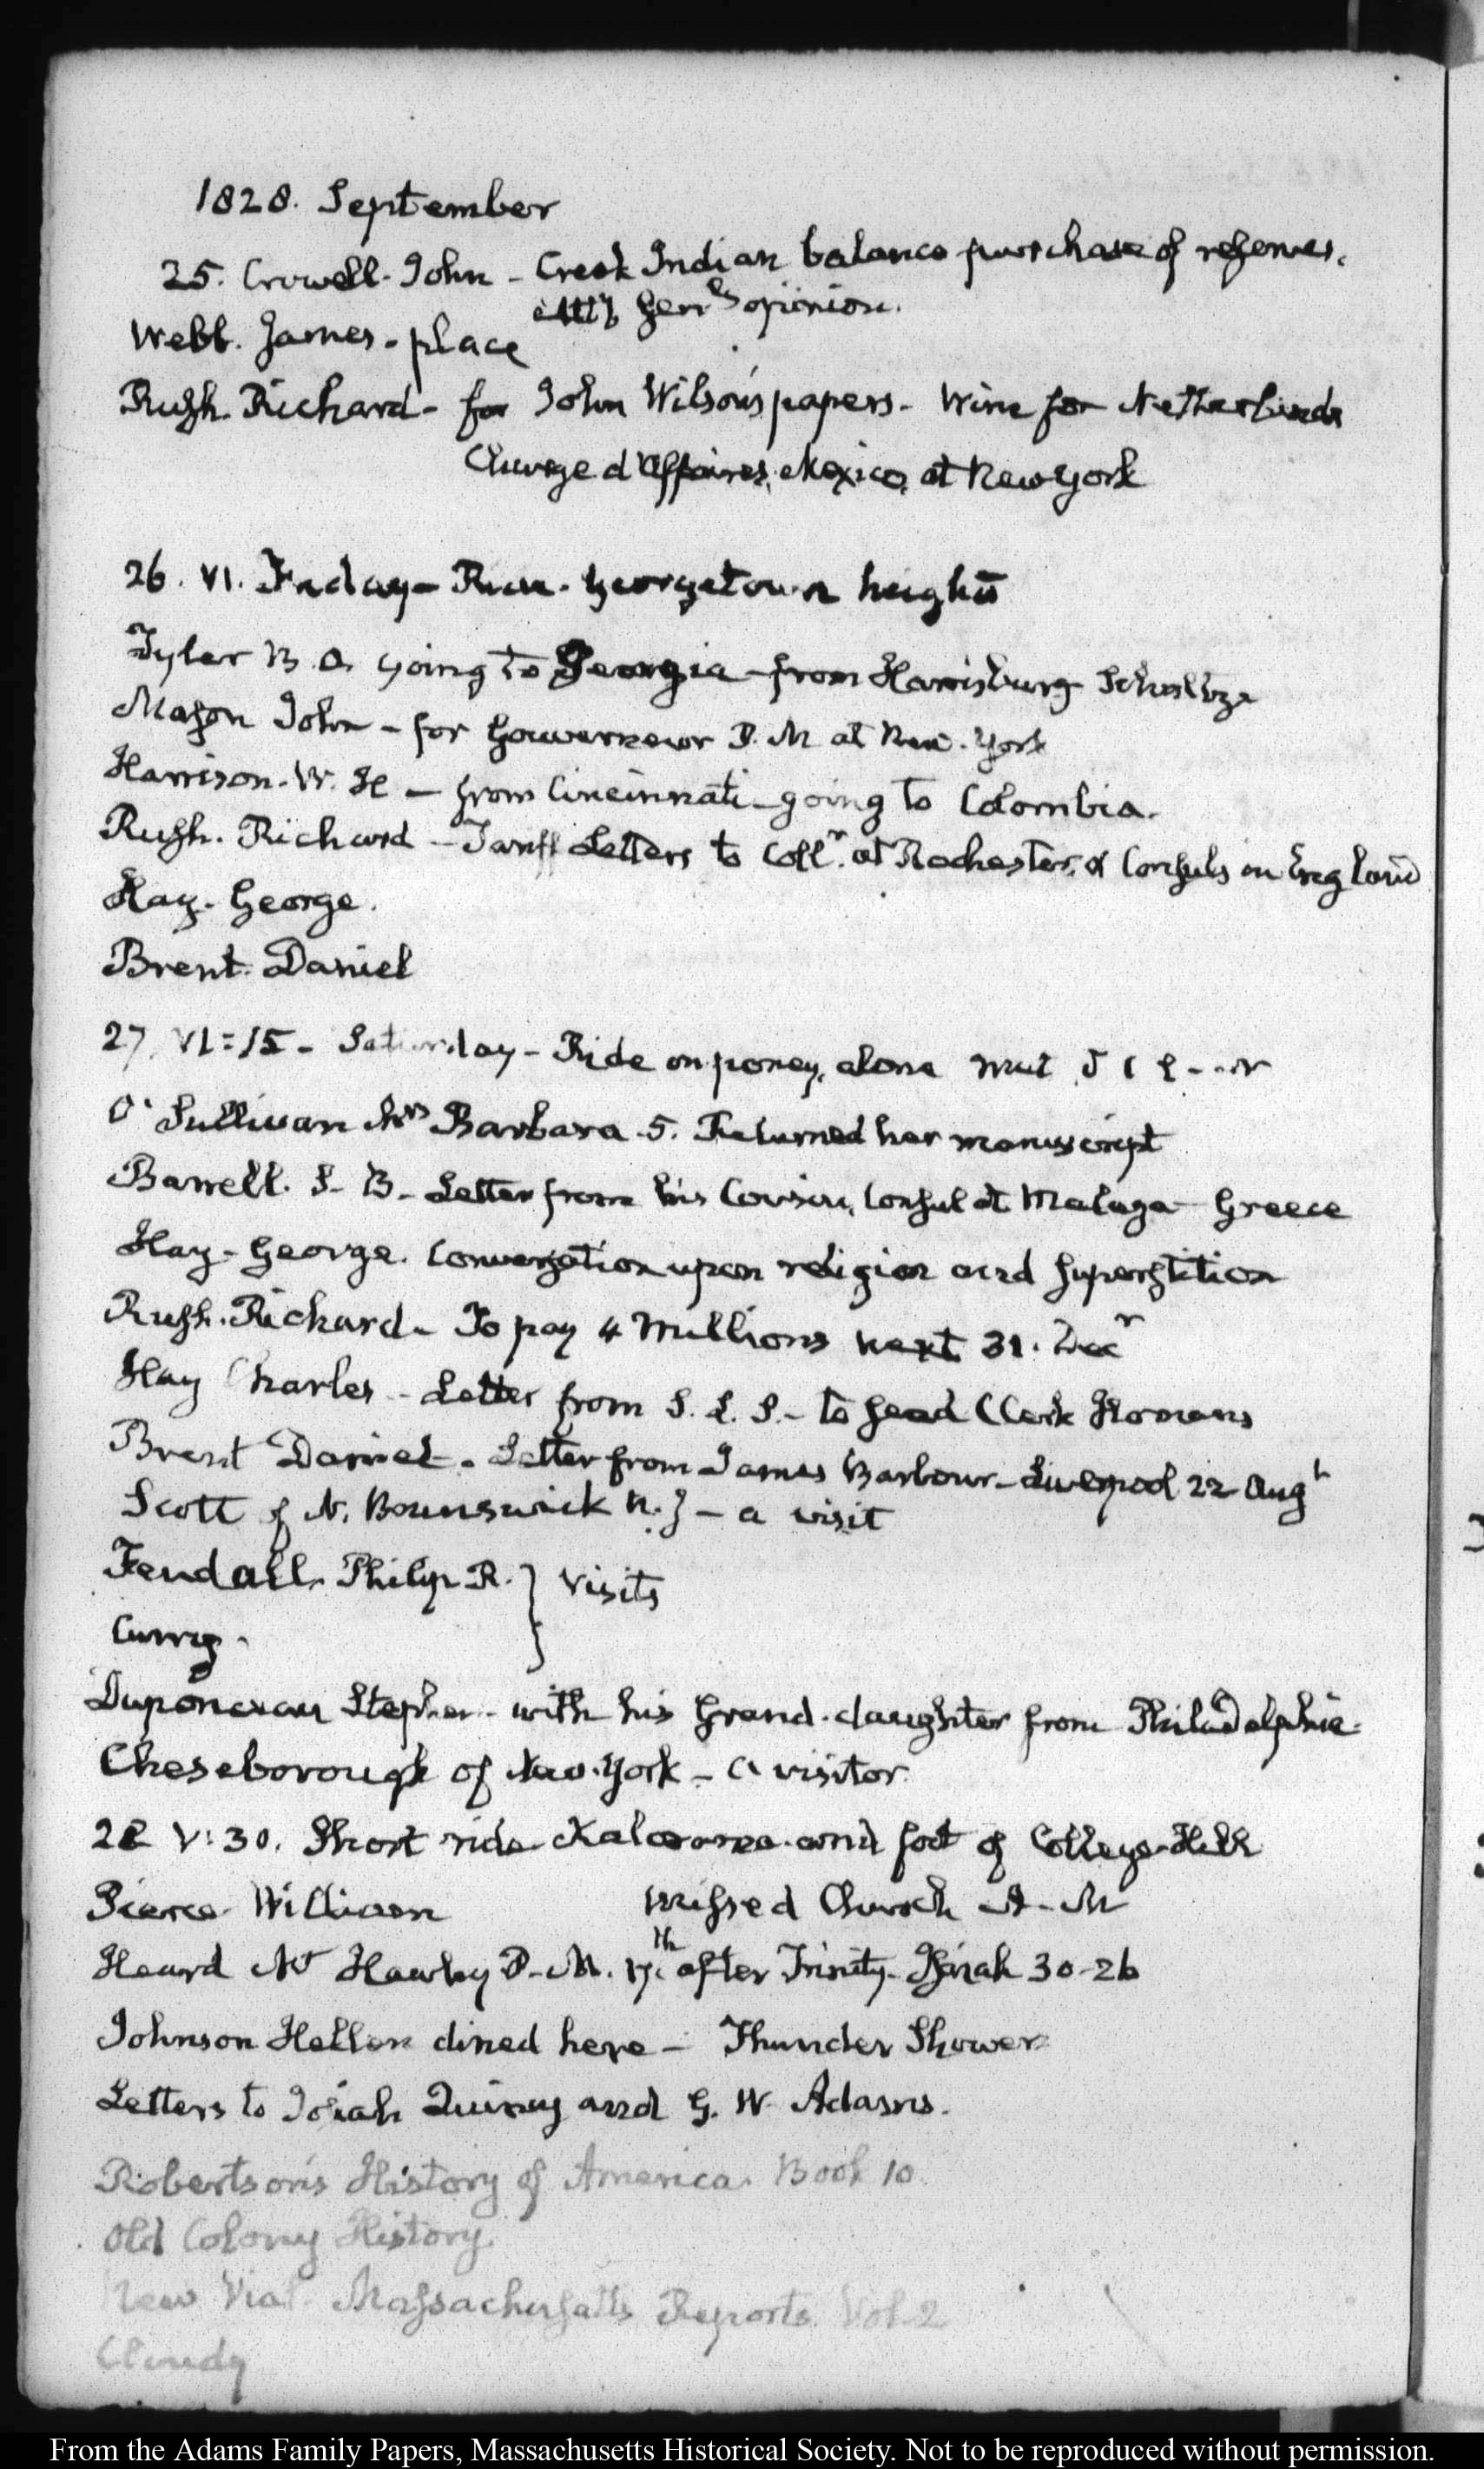 1828. September
25. Crowell. John - Creek Indian balance purchase of reserves.
Atty Genls opinion.
Webb. James - place
Rush. Richard - for John Wilson's papers - Wine for Netherlands
Charge d'Affaires, Mexico, at New York
26. VI. Friday - Rain. Georgetown heights
Tyler B. O. going to Georgia - from Harrisburg
Mason John - for Gouverneur P. M at New-York
Harrison. W. H - from Cincinnati - going to Colombia.
Rush. Richard - Tariff Letters to Collr. at Rochester, & Consuls in England
Hay. George.
Brent. Daniel
27. VI:15 - Saturday - Ride on poney, alone met
O'Sullivan Mrs Barbara. 5. Returned her manuscript
Barrell. S. B - Letter from his Cousin, Consul at Malaga - Greece
Hay - George. Conversation upon religion and superstition
Rush. Richard - To pay 4 Millions next 31. Decr
Hay Charles - Letter from S. L. S. - to send Clerk Homans
Brent Daniel. Letter from James Barbour - Liverpool 22 Augt
Scott of N. Brunswick N. J - a visit
Fendall. Philip R. } Visits
Curry.
Duponceau Stephen - with his Grand-daughter from Philadelphia.
Cheseborough of New-York - a visitor.
28 V:30. Short ride Kalorama and foot of College-Hill
Pierce William Missed Church A. M
Heard Mr Hawley P. M. 17.th after Trinity - Isaiah 30-26
Johnson Hellen dined here - Thunder Shower
Letters to Josiah Quincy and G. W. Adams.
Robertson's History of America. Book 10.
Old Colony History.
New Massachusetts Reports. Vol. 2
Cloudy
From the Adams Family Papers, Massachusetts Historical Society. Not to be reproduced without permission.